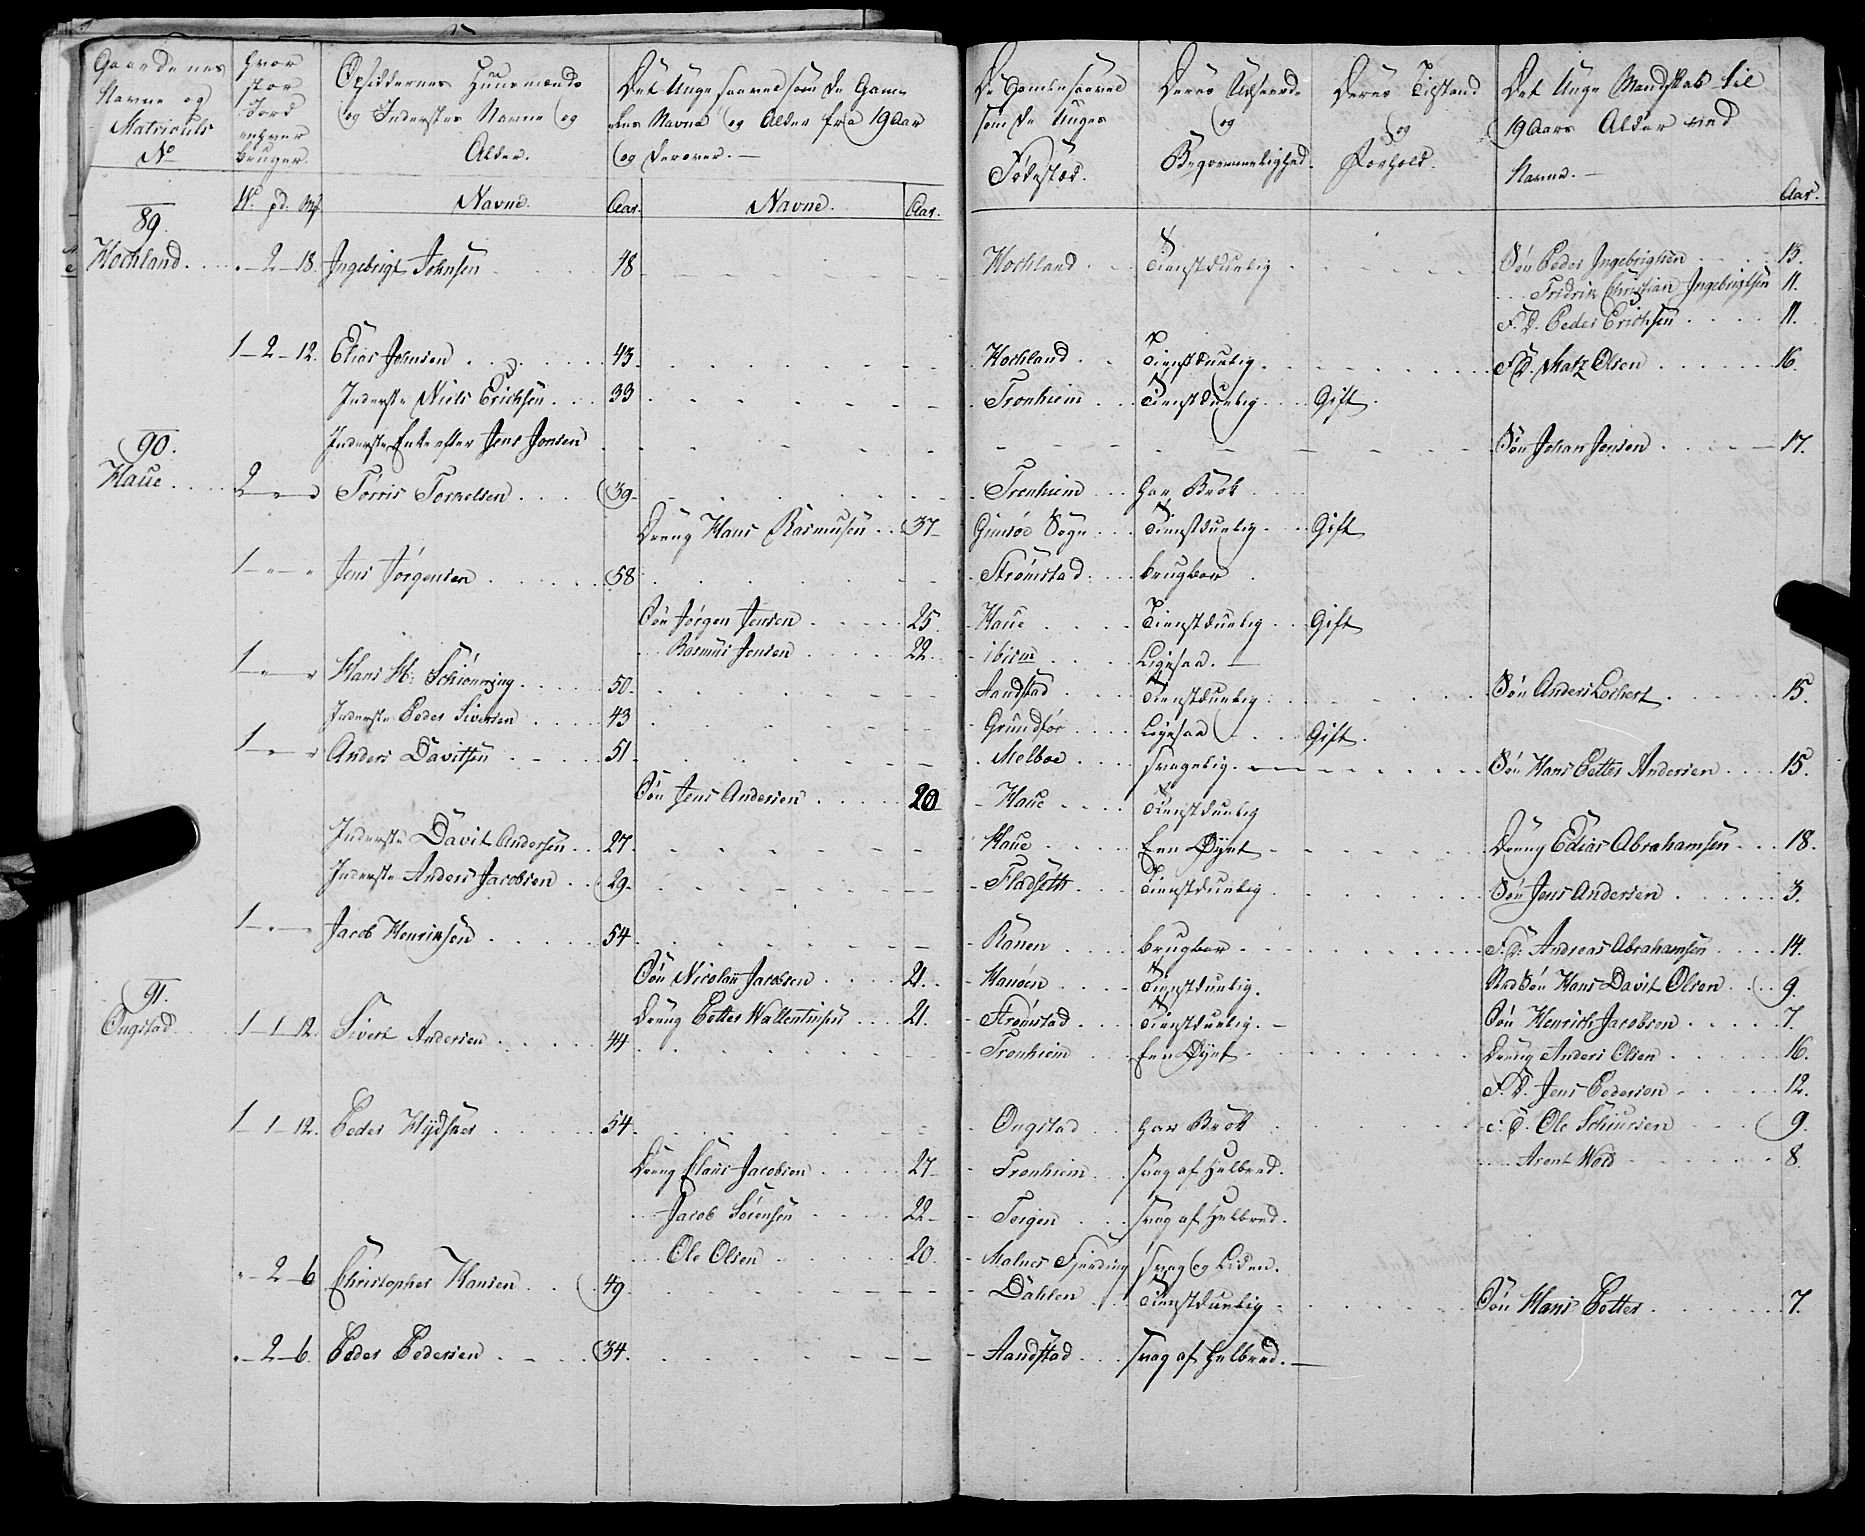 Gaardenes Navne og Matriculs No | hvor stor Jord enhver bruger. | Opsiddernes Huusmænds og Inderstes Navne og Alder. | Det Unge saavel som De Gamles Navne og Alder fra 19 Aar og derover. — | De Gamle saavel som De Unges Fødestæd. | Deres Udseende og Beqvemmelighed. | Deres Tilstand og Forhold. | Det Unge Mandskab til 19 Aars Alder ved Navne. —
W. pd. Mk | Navne. | Aar. | Navne. | Aar. | Aar.
89.
Hochland | " - 2 - 18. | Ingebrigt Johnsen | 48 | Hochland | Tienstduelig | Søn Peder Ingebrigtsen | 13.
Fridrik Christian Ingebrigtsen | 11.
F. D. Peder Erichsen | 11.
1 - 2 - 12. | Elias Johnsen | 43 | Hochland | Tienstduelig | F. D. Matz Olsen | 16.
Inderste Niels Erichsen | 33 | Tronhiem | Tienstduelig | Gift.
90.
Inderste Enke efter Jens Jonsen | Søn Johan Jensen | 17.
Haue | 2 - " - " | Torris Torkelsen | 39 | Tronhiem | har Brok
Dreng Hans Rasmusen | 37 | Gimsøe Sogn | Tienstduelig | Gift
1 - " - " | Jens Jørgensen | 58 | Strømstad | brugbar
Søn Jørgen Jensen | 25. | Haue | Tienstduelig | Gift
Rasmus Jensen | 22. | ibidm | Ligesaa. —
1 - " - " | Hans H: Schiønning | 50 | Sandstad | Tienstduelig | Søn Anders Lochert | 15.
Inderste Peder Siversen | 43 | Grundfør | Ligesaa | Gift.
1 - " - " | Anders Davitsen | 51 | Melboe | svagelig. | Søn Hans Petter Andersen | 15.
Søn Jens Andersen | 20 | Haue | Tienstduelig
Inderste Davit Andersen | 27 | Haue | Een Øynt | Dreng Edias Abrahamsen | 18.
Inderste Anders Jacobsen | 29 | Fladseth | Tienstduelig | Søn Jens Andersen | 3.
1 - " - " | Jacob Henriksen | 54 | Ranen | brugbar | F. D. Andreas Abrahamsen | 14.
Søn Nicolaii Jacobsen | 21. | Hanøen | Tienstduelig. | Sød Søn Hans Davit Olsen | 9.
91.
Dreng Petter Wallentinsen | 21. | Strømstad | Tienstduelig. — | Søn Henrich Jacobsen | 7.
Ongstad | 1 - 1 - 12. | Sivert Andersen | 44 | Tronhiem | Een Øynt | Dreng Anders Olsen | 16.
F. D. Jens Pedersen | 12.
1 - 1 - 12. | Peder | 54 | Ongstad | har Brok | F. D. Ole | 9.
Dreng Claus Jacobsen | 27 | Tronhiem | svag af Helbred. | Arent Wold | 8.
Jacob Sørensen | 22 | Torgen | svag af Helbred.
Ole Olsen | 20. | Malnes Fjerding | svag og Liden.
" - 2 - 6 | Christopher Hansen | 49 | Dahlen | Tienstduelig | Søn Hans Petter | 7.
" - 2 - 6. | Peder Pedersen | 34. | Sandstad | svag af Helbred. —